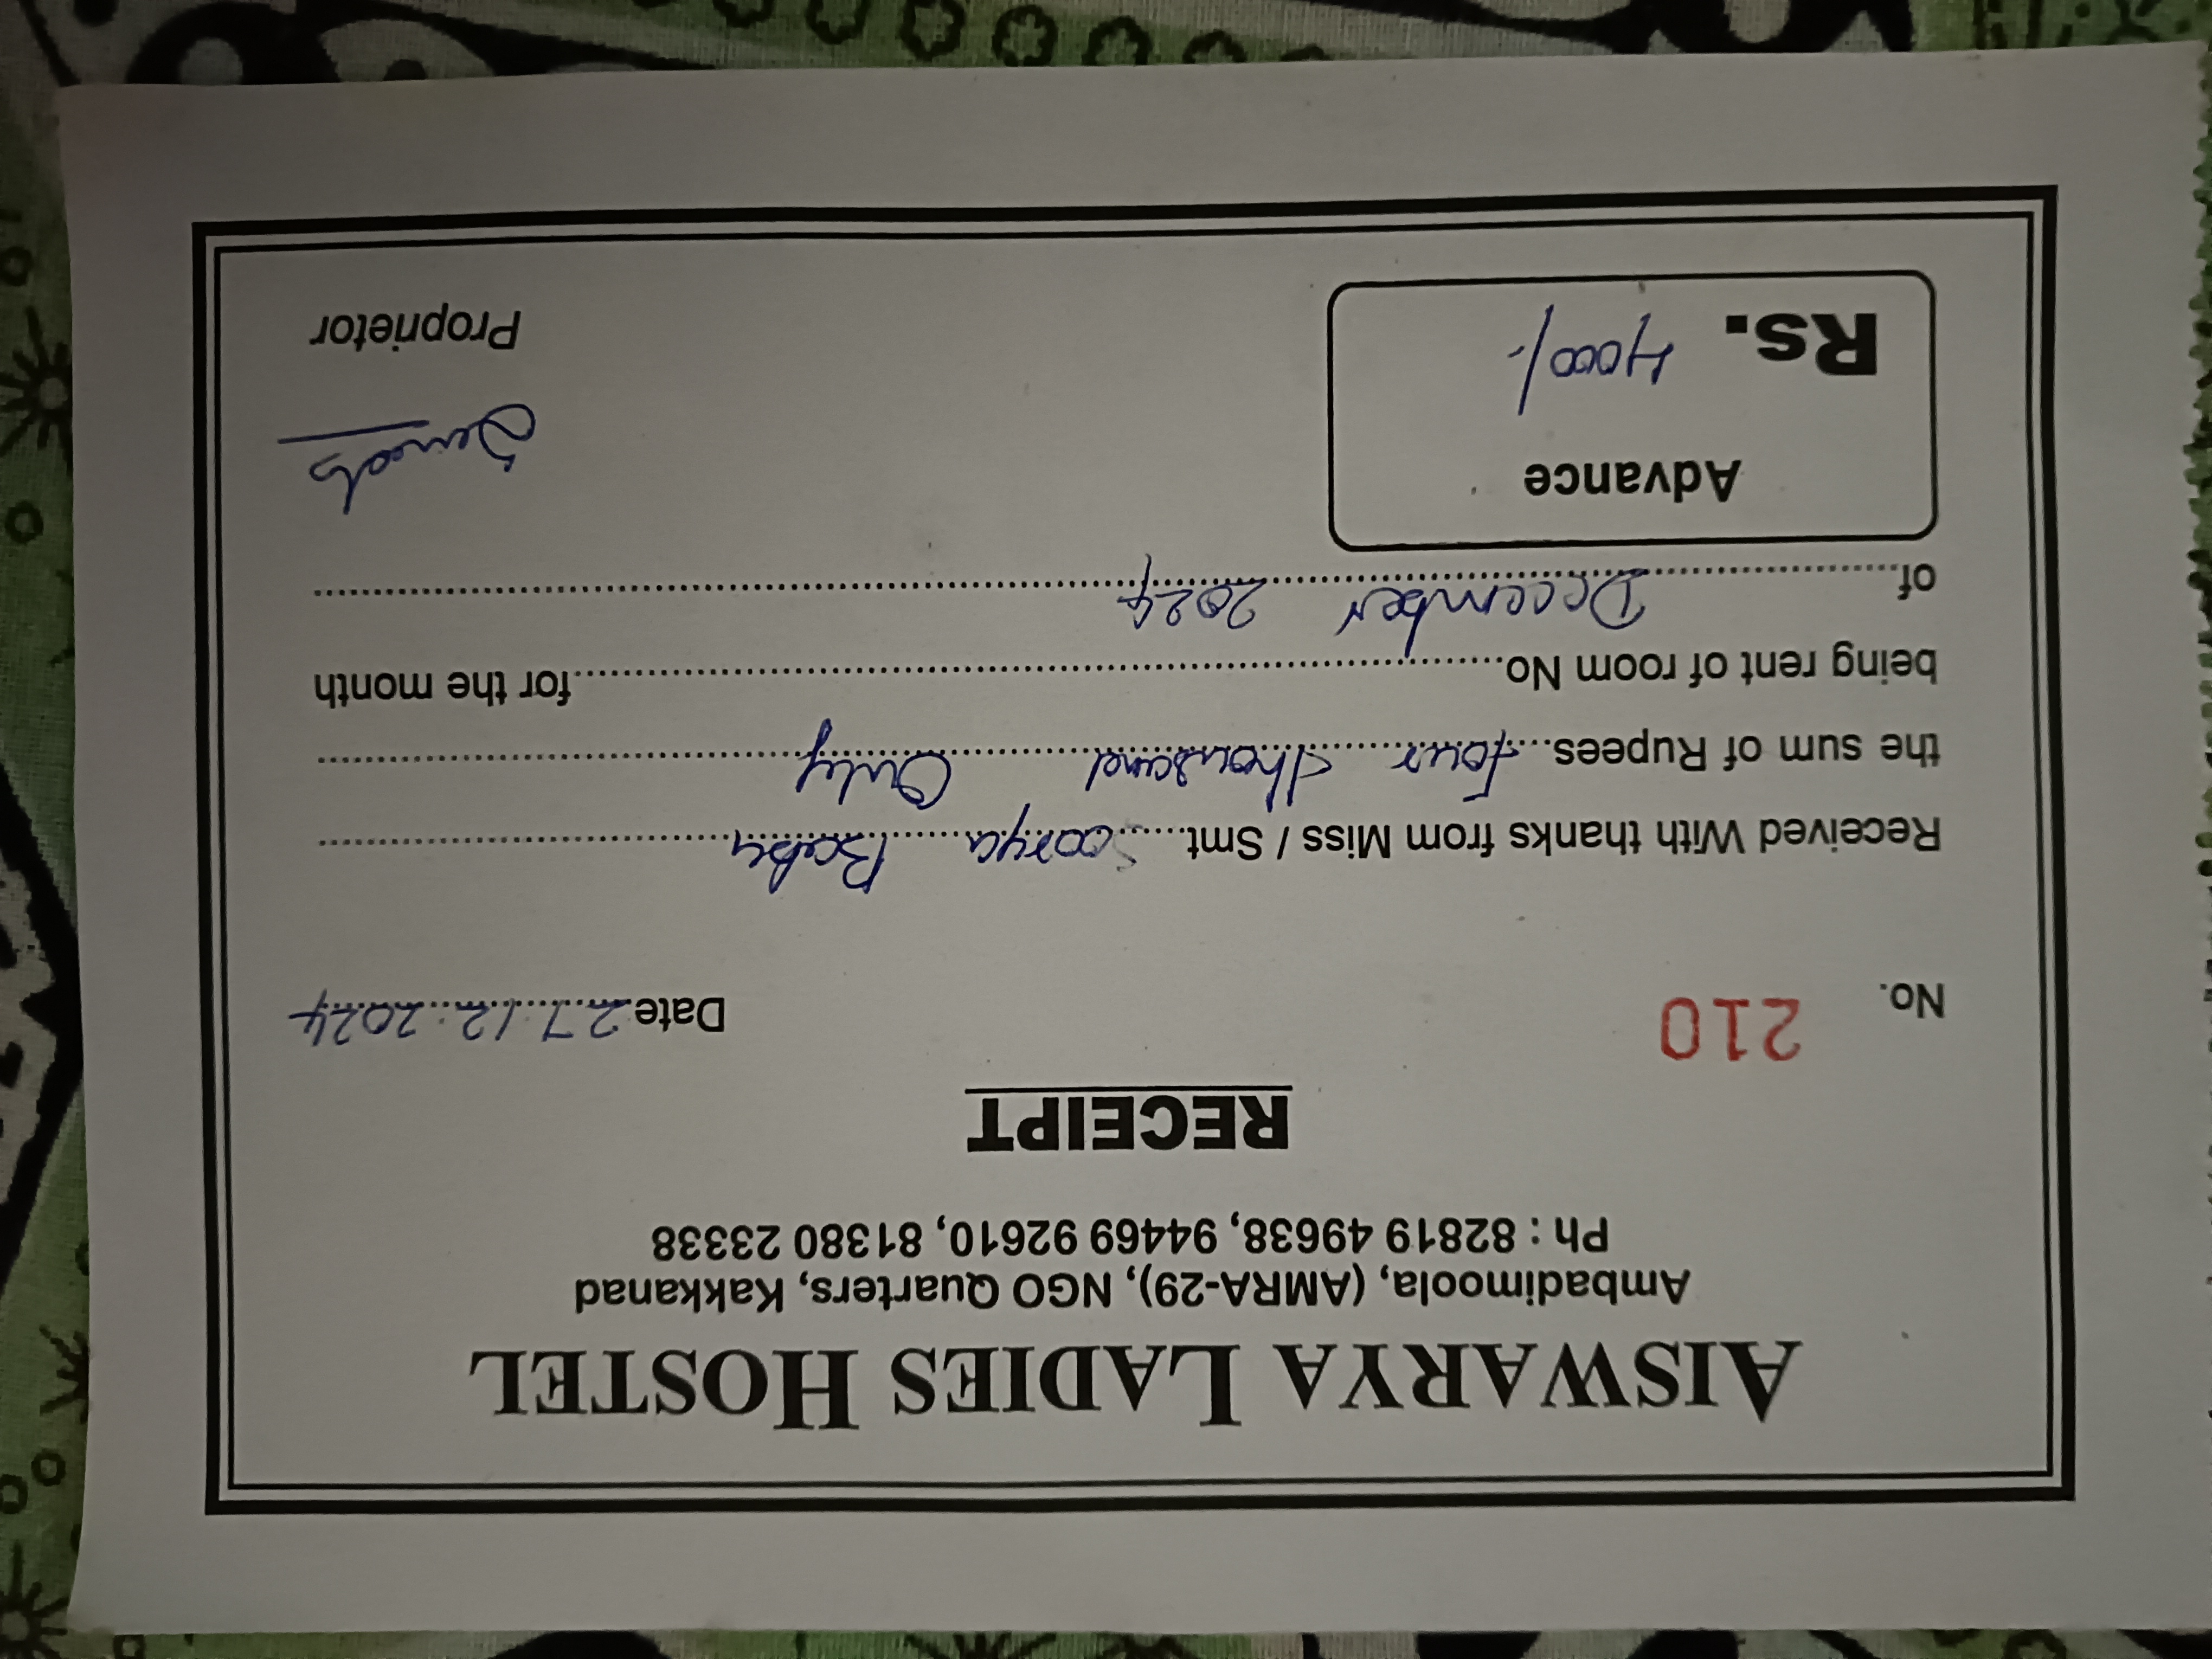 AISWARYA LADIES HOSTEL
Ambadimoola, (AMRA-29), NGO Quarters, Kakkanad
Ph : 82819 49638, 94469 92610, 81380 23338
RECEIPT
No. 210 Date 27.12.2024
Received With thanks from Miss / Smt. Soorya Babu
the sum of Rupees four thousand Only
being rent of room No. for the month
of December 2024
Advance
Rs. 4000/-
Proprietor